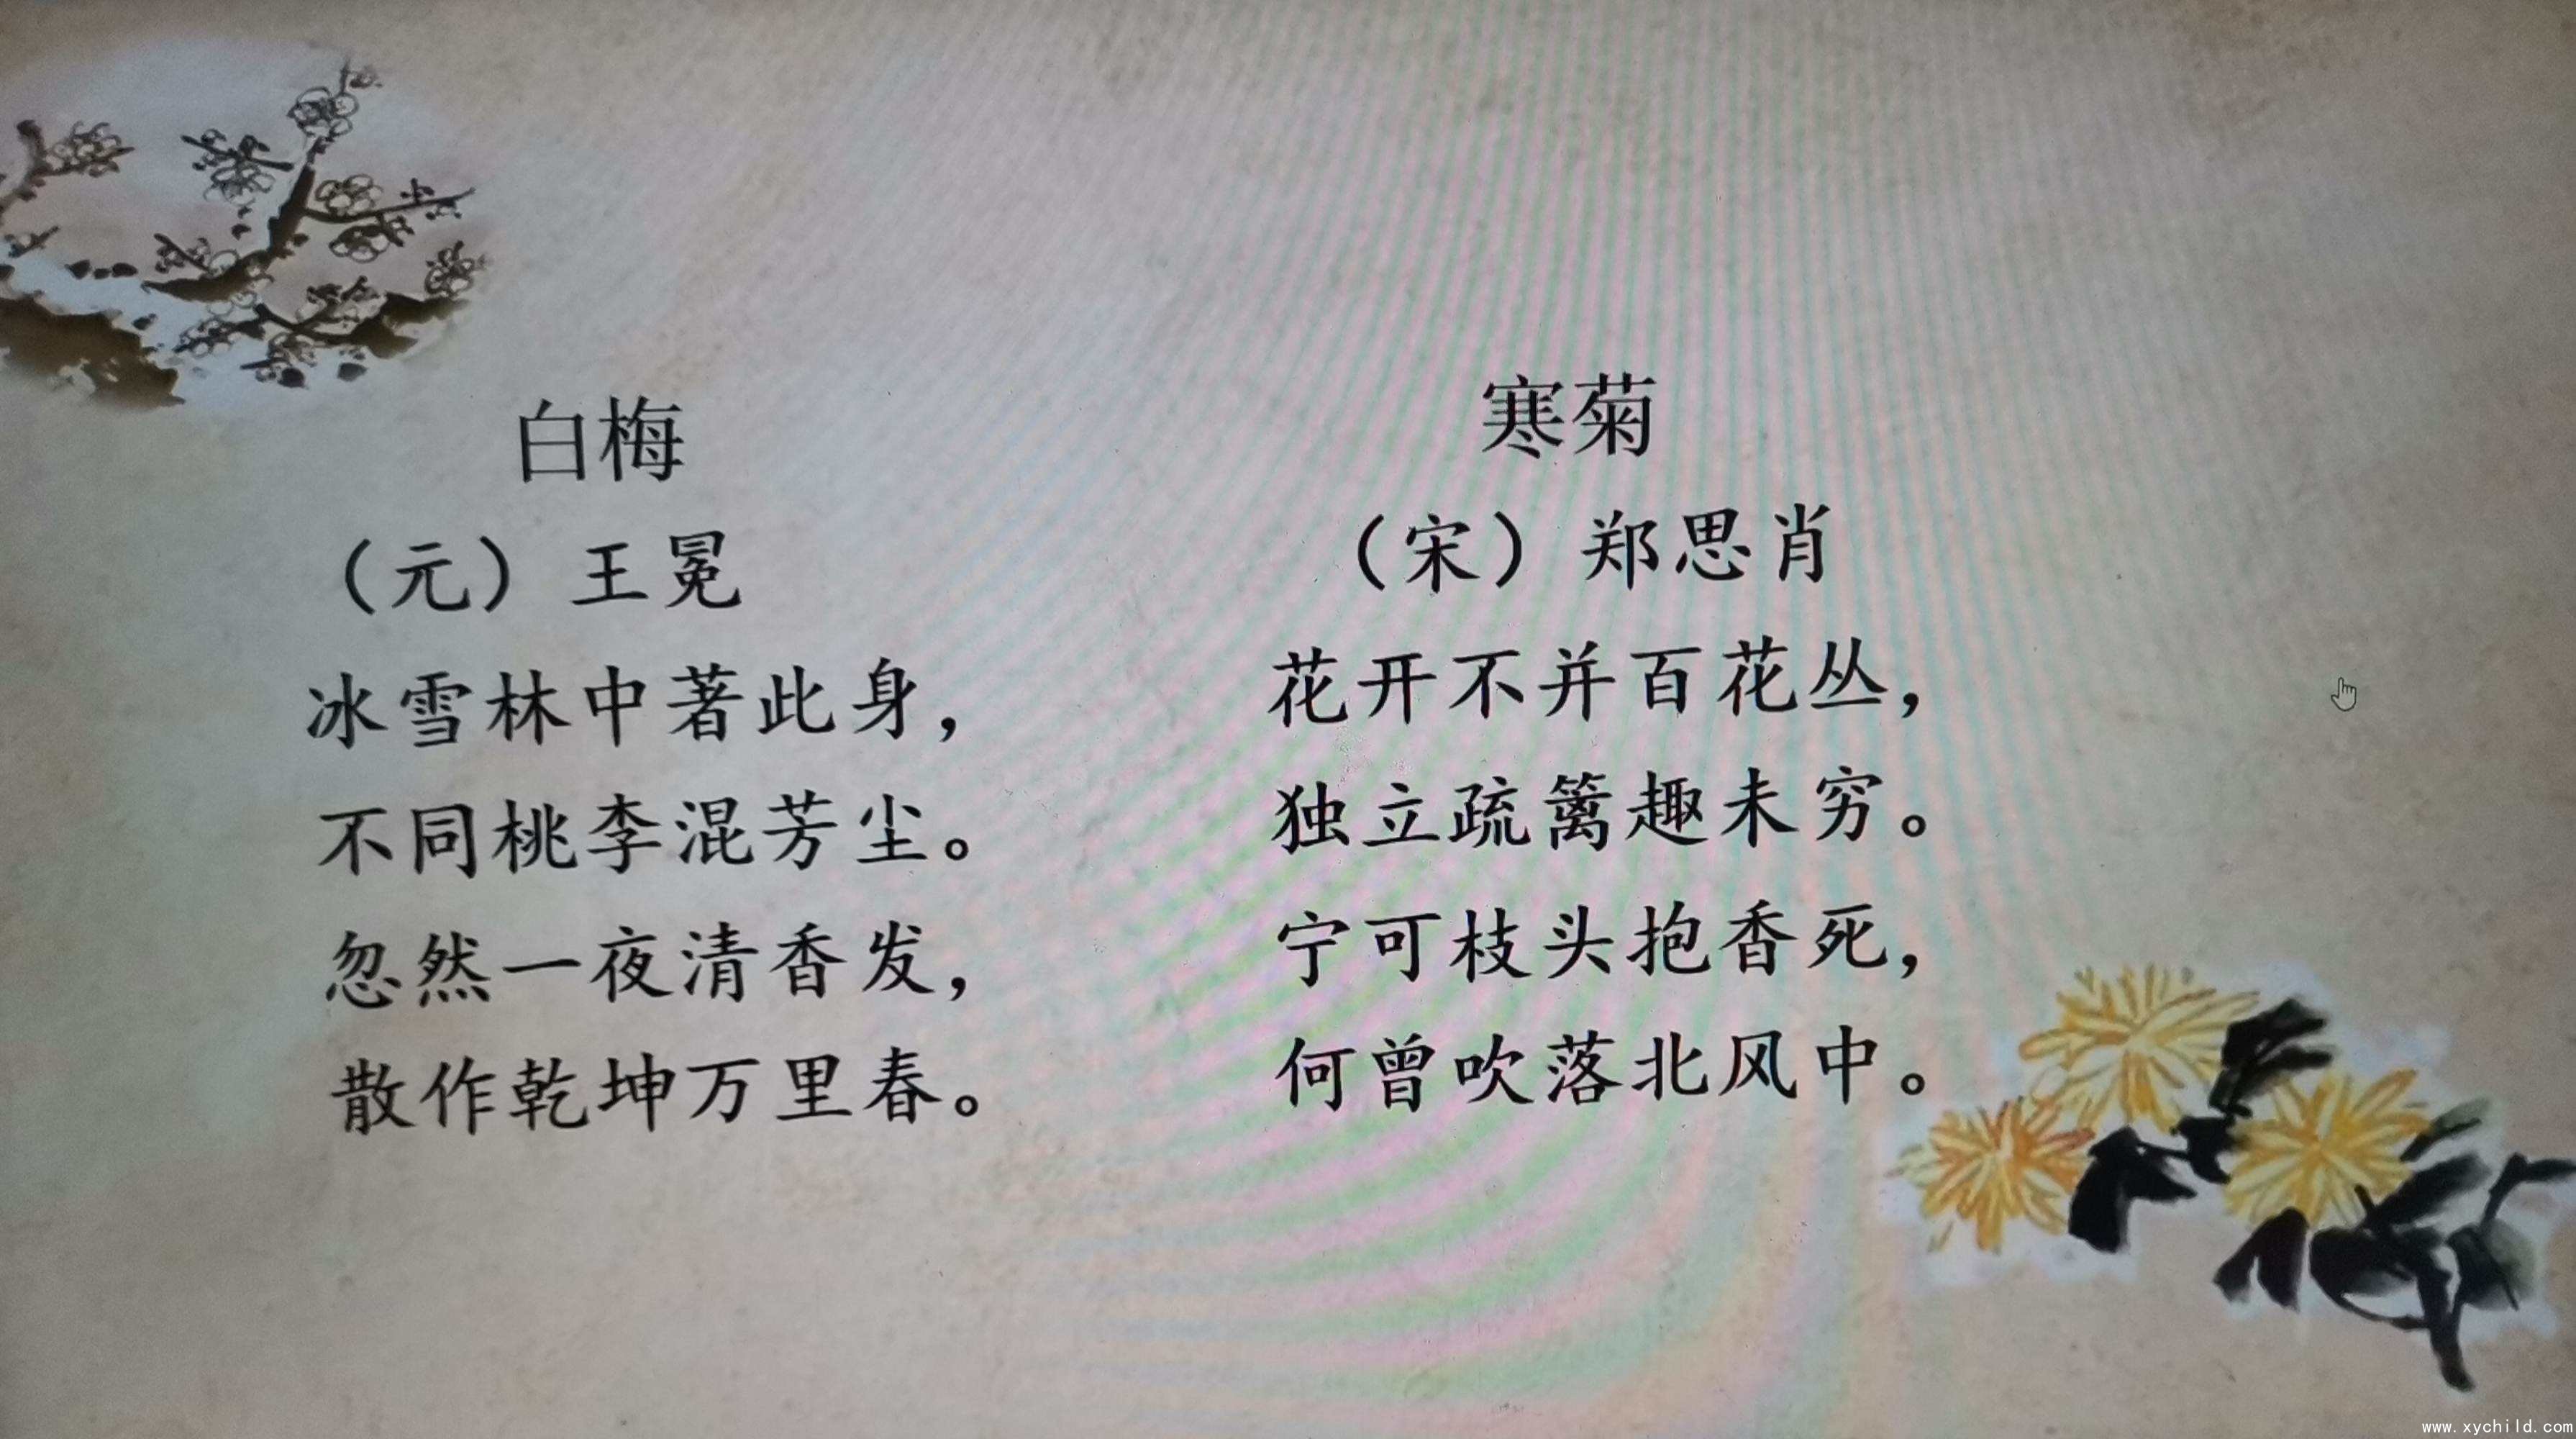 白梅
（元）王冕
冰雪林中著此身，
不同桃李混芳尘。
忽然一夜清香发，
散作乾坤万里春。
寒菊
（宋）郑思肖
花开不并百花丛，
独立疏篱趣未穷。
宁可枝头抱香死，
何曾吹落北风中。
www.xychild.com